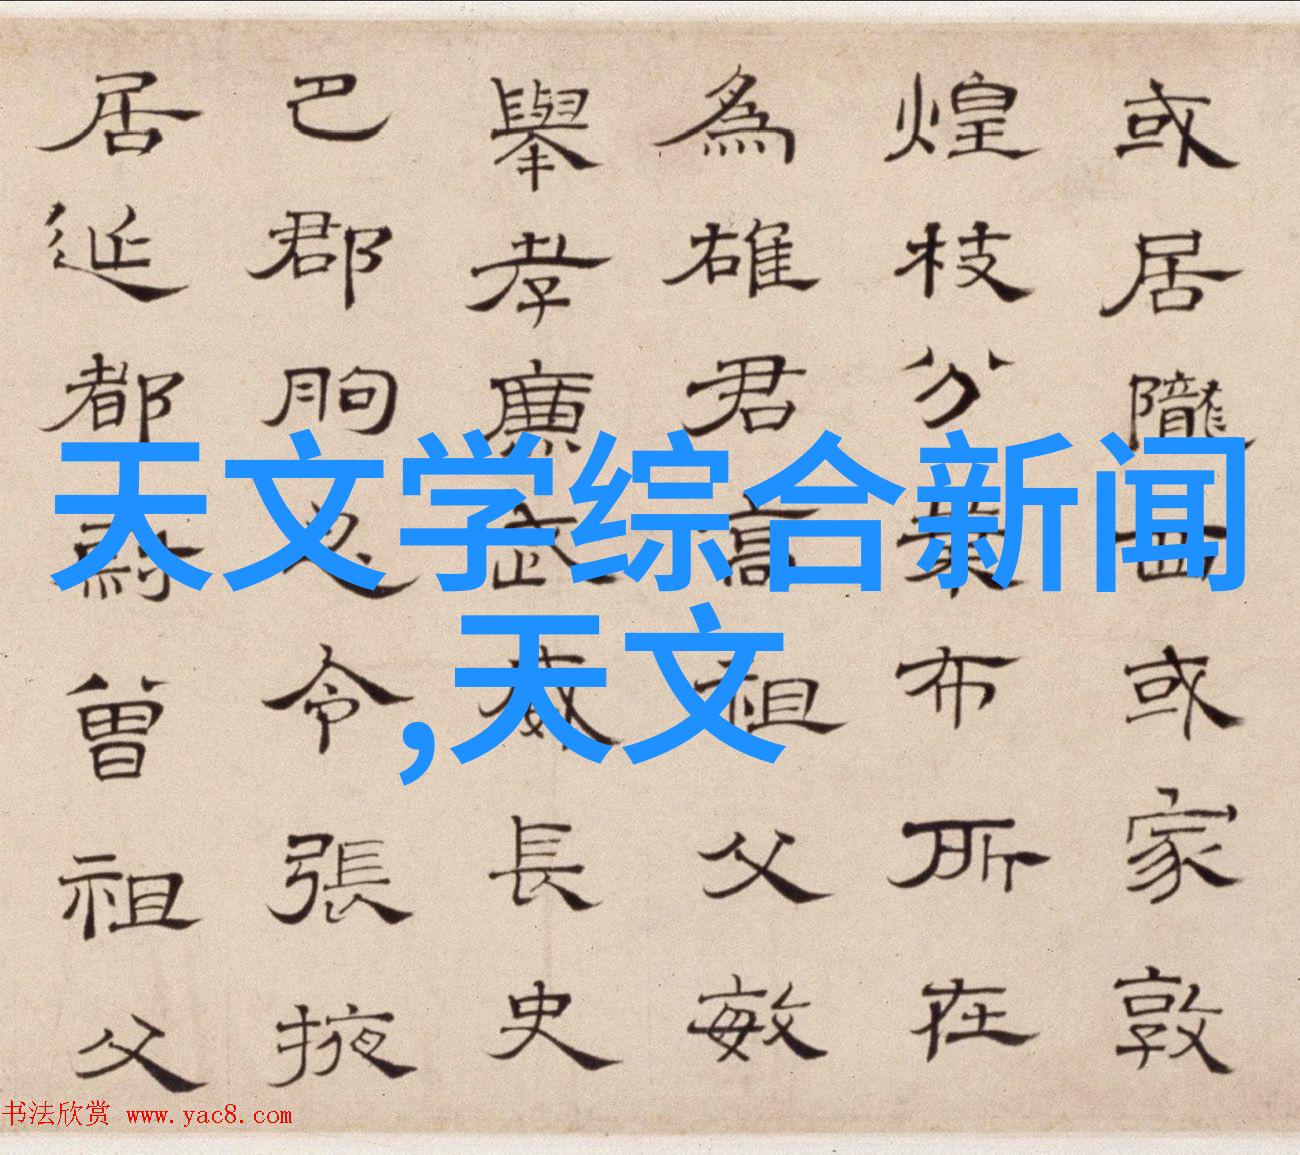 或居隴西或家敦
煌枝分葉布所在
為雄君高祖父敏
舉孝廉武威長史
巴郡朐忍令張掖
居延都尉曾祖父
天文学综合新闻
,天文
书法欣赏 www.yac8.com